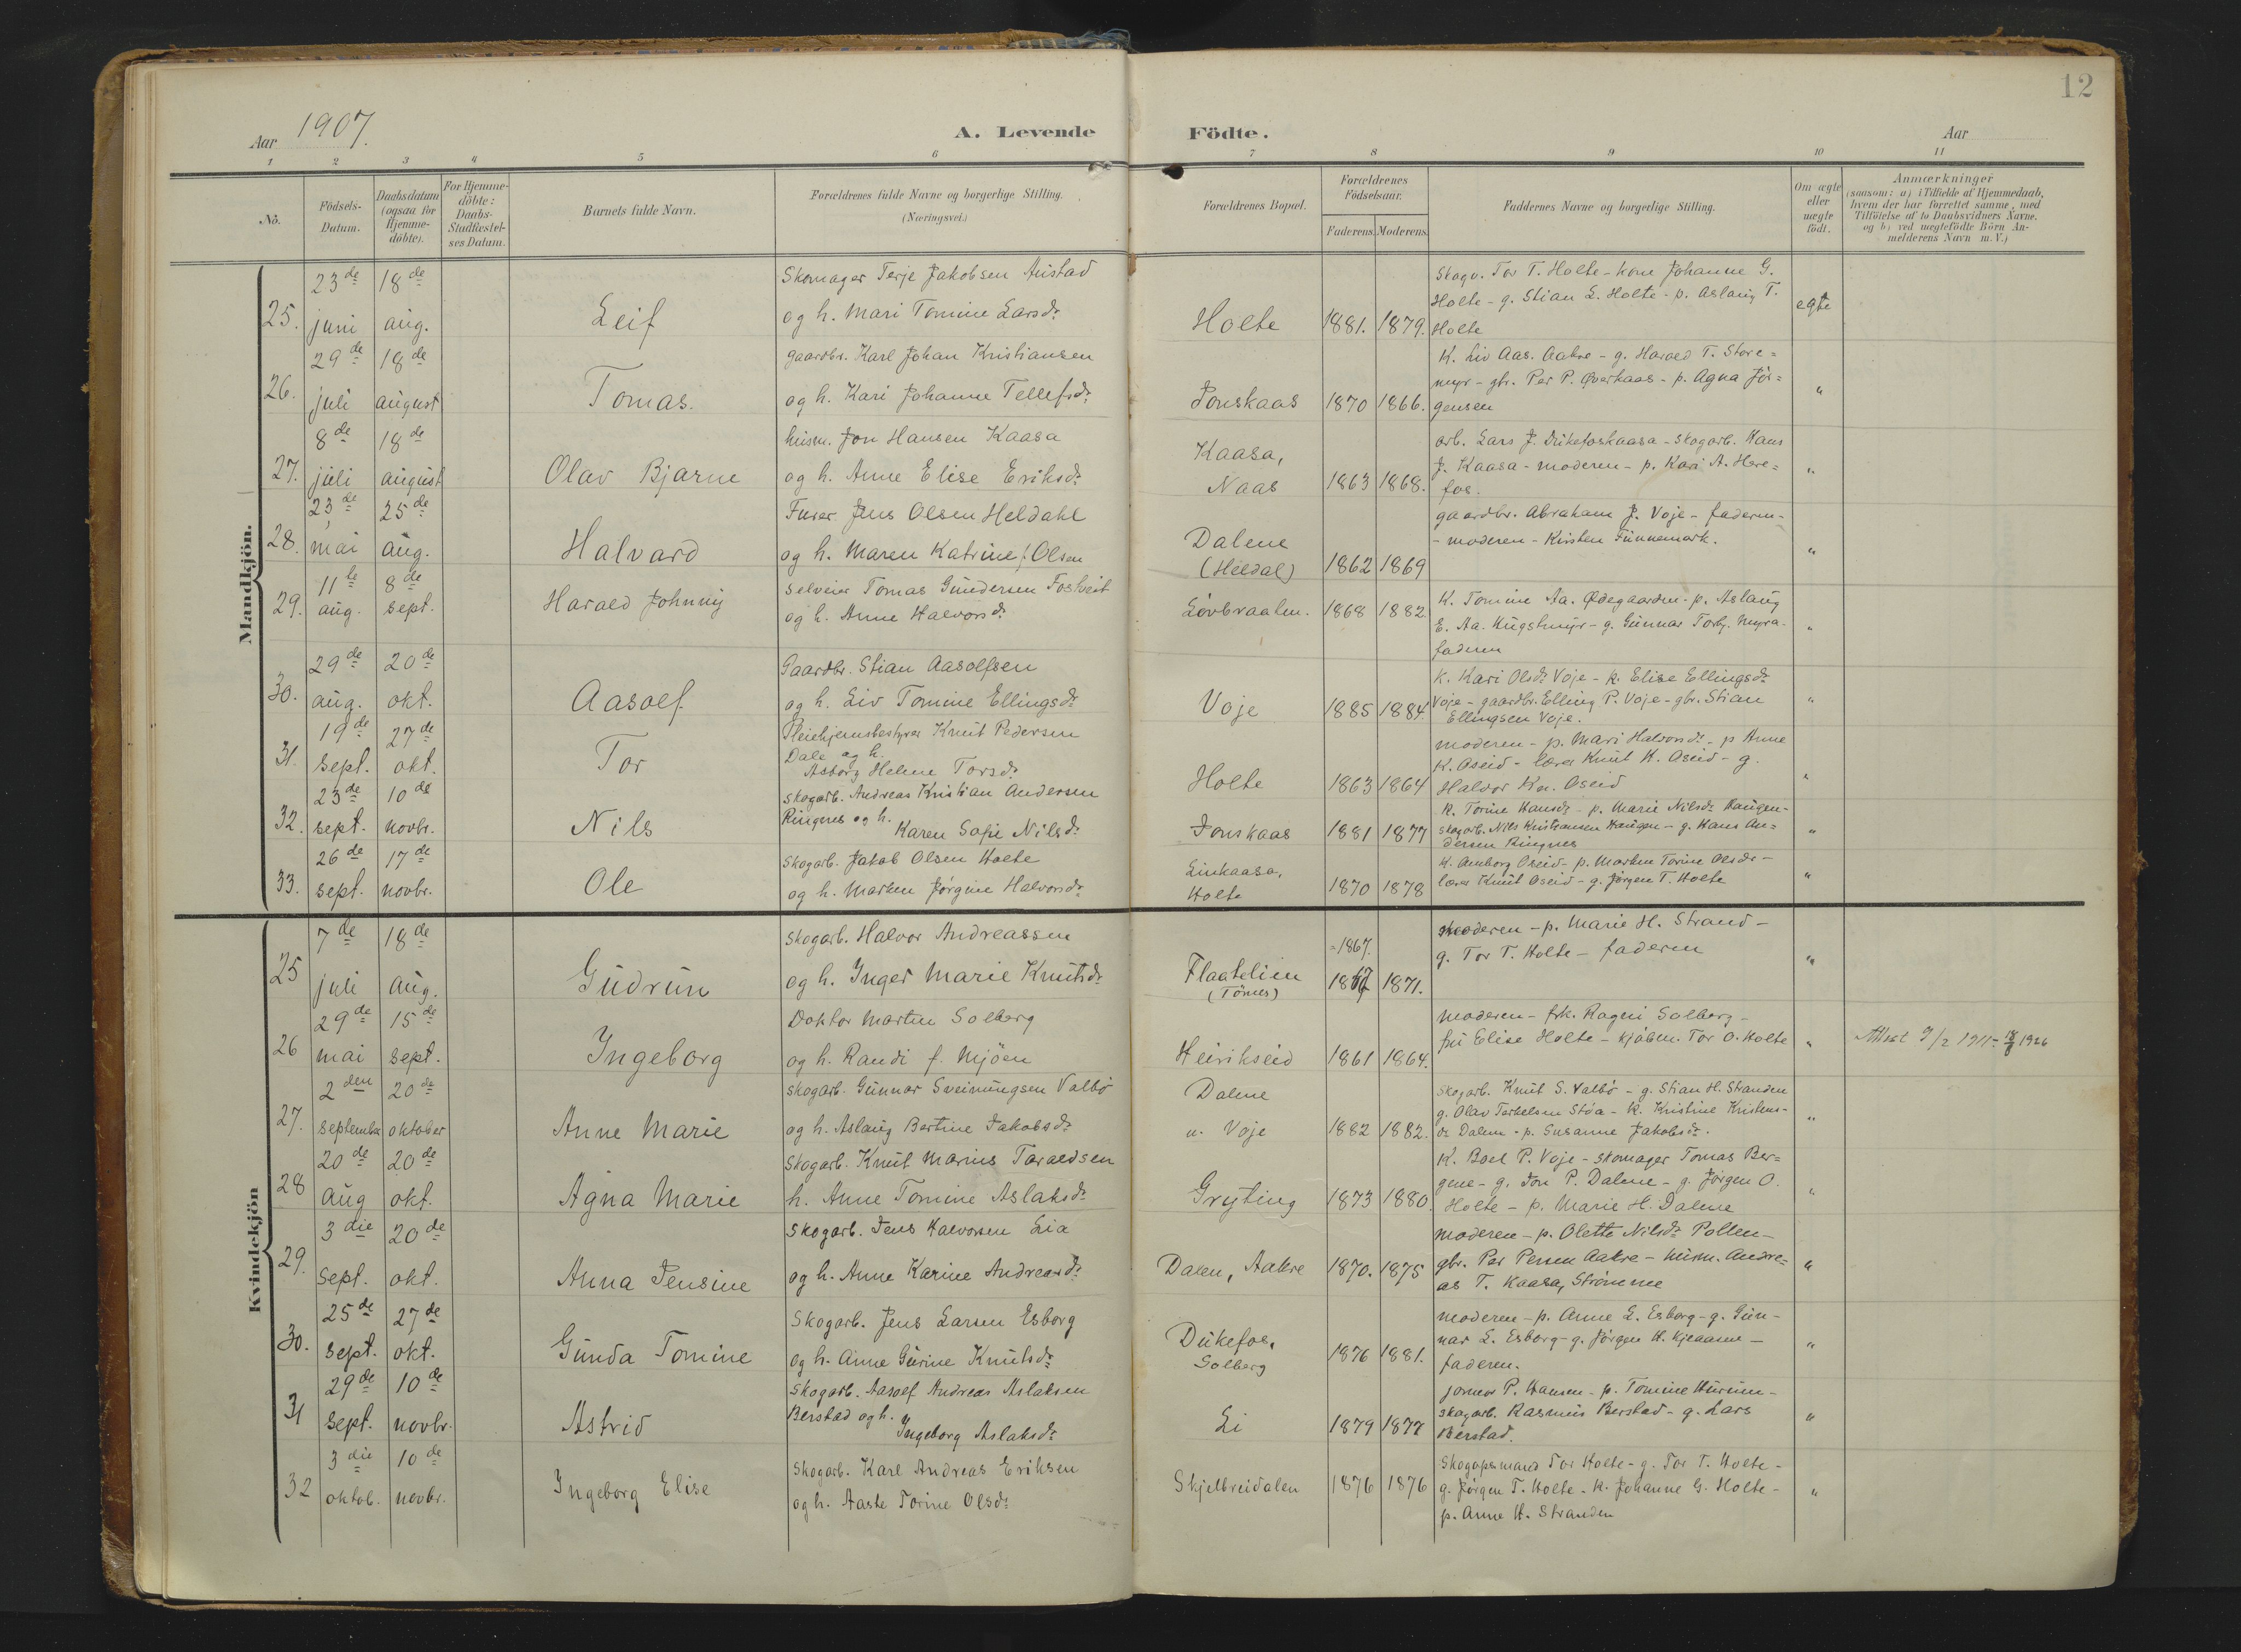 12
Aar 1907.
A. Levende Födte.
Aar
1 2 3 4 5 6 7 8 9 10 11
No.
Födsels-
Datum.
Daabsdatum
(ogsaa for
Hjemme-
döbte).
For Hjemme-
döbte:
Daabs-
Stadfæstel-
ses Datum.
Barnets fulde Navn.
Forældrenes fulde Navne og borgerlige Stilling.
(Næringsvei.)
Forældrenes Bopæl.
Forældrenes
Födselsaar.
Faderens. Moderens.
Faddernes Navne og borgerlige Stilling.
Om ægte
eller
uægte
födt.
Anmærkninger
(saasom: a) i Tilfælde af Hjemmedaab,
hvem der har forrettet samme, med
Tilföielse af to Daabsvidners Navne.
og b) ved uægtefödte Börn An-
melderens Navn m. V.)
Mandkjön.
25. 23de juni 18de aug. Leif
Skomager Terje Jakobsen Austad
og h. Mari Tomine Larsdr
Holte 1881. 1879.
Skogv. Tor T. Holte - kone Johanne G.
Holte - g. Stian L. Holte - p. Aslaug T.
Holte
egte
26. 29de juli 18de august Tomas.
gaardbr. Karl Johan Kristiansen
og h. Kari Johanne Tellefsdr
Jonskaas 1870 1866.
K. Liv Aas. Aakre - g. Harald T. Store=
myr - gbr. Per P. Överkaas - p. Agna Jör=
gensen
"
27. 8de juli 18de august Olav Bjarne
husm. Jon Hansen Kaasa
og h. Anne Elise Eriksdr
Kaasa,
Naas 1863 1868.
arb. Lars J. Dukefoskaasa - skogarb. Hans
J. Kaasa - moderen - p. Kari A. Here=
fos.
"
28. 23de mai 25de aug. Halvard
Furer Jens Olsen Heldahl
og h. Maren Katrine f. Olsen
Dalene
(Heldal) 1862 1869
gaardbr. Abraham J. Voje - faderen -
- moderen - Kirsten Funnemark.
"
29. 11te aug. 8de sept. Harald Johnny
Selveier Tomas Gundersen Fostveit
og h. Anne Halvorsdr
Lövbraaten. 1868 1882.
K. Tomine Aa. Ödegaarden - p. Aslaug
E. Aa. Hugstmyr - g. Gunnar Torbj. Myra -
faderen
"
30. 29de aug. 20de okt. Aasolf.
Gaardbr. Stian Aasolfsen
og h. Liv Tomine Ellingsdr
Voje 1885 1884.
K. Kari Olsdr Voje - p. Elise Ellingsdr
Voje - gaardbr. Elling P. Voje - gbr. Stian
Ellingsen Voje.
"
31. 19de sept. 27de okt. Tor
Pleiehjemsbestyrer Knut Pedersen
Dale og h.
Asborg Helene Torsdr
Holte 1863 1864
moderen - p. Mari Halvorsdr - p Anne
K. Oseid - lærer Knut K. Oseid - g.
Halvor Kn. Oseid
"
32. 23de sept. 10de novbr. Nils
Skogarb. Andreas Kristian Andersen
Ringnes og h.
Karen Sofie Nilsdr
Jonskaas 1881 1877
K. Torine Hansdr - p. Marie Nilsdr Haugen -
skogarb. Nils Kristiansen Haugen - g. Hans An=
dersen Ringnes
"
33. 26de sept. 17de novbr. Ole
Skogarb. Jakob Olsen Holte
og h. Marken Jörgine Halvorsdr
Linkaasa,
Holte 1870 1878
K. Amborg Oseid - p. Marken Torine Olsdr -
lærer Knut Oseid - g. Jörgen T. Holte
"
Kvindekjön
25 7de juli 18de aug. Gudrun
Skogarb. Halvor Andreassen
og h. Inger Marie Knutsdr
Flaatelien
(Tömes) =1867. 1867 1871.
moderen - p. Marie H. Strand -
g. Tor T. Holte - faderen
"
26 29de mai 15de sept. Ingeborg
Doktor Martin Solberg
og h. Randi f. Mjöen
Heirikseid 1861 1864.
moderen - frk. Ragni Solberg -
fru Elise Holte - kjöbm. Tor O. Holte
"
Attest 9/2 1911 - 1926
27. 2den september 20de oktober Anne Marie
Skogarb. Gunnar Sveinungsen Valbö
og h. Aslaug Bertine Jakobsdr
Dalene
u. Voje 1882 1882.
Skogarb. Knut S. Valbö - g. Stian H. Stranden
g. Olav Terkelsen Stöa - K. Kristine Kristens-
dr Dalen - p. Susanne Jakobsdr.
"
28 20de aug 20de okt. Agna Marie
Skogarb. Knut Marius Taraldsen
h. Anne Tomine Aslaksdr
Gryting 1873 1880.
K. Boel P. Voje - skomager Tomas Ber=
gene - g. Jon P. Dalene - g. Jörgen O.
Holte - p. Marie H. Dalene
"
29. 3die sept. 20de okt. Anna Jensine
Skogarb. Jens Halvorsen Lia
og h. Anne Karine Andreasdr
Dalen, Aakre 1870. 1875
moderen - p. Olette Nilsdr Pollen -
gbr. Per Persen Aakre - husm. Andre=
as T. Kaasa, Strömme
"
30. 25de sept. 27de okt. Gunda Tomine
Skogarb. Jens Larsen Esborg
og h. Anne Gurine Knutsdr
Dukefos,
Solberg 1876 1881.
moderen - p. Anne L. Esborg - g. Gun-
nar L. Esborg - g. Jörgen H. Kjeaasen -
faderen.
"
31 29de sept. 10de novbr. Astrid
Skogarb. Aasolf Andreas Aslaksen
Berstad og h.
Ingeborg Aslaksdr
Li 1879 1877
jormor P. Hansen - p. Tomine Hurum -
skogarb. Rasmus Berstad - g. Lars
Berstad.
"
32 3die oktob. 10de novbr. Ingeborg Elise
Skogarb. Karl Andreas Eriksen
og h. Aaste Torine Olsdr
Skjelbreidalen 1876 1876
Skogopsmand Tor Holte - g. Tor T. Holte -
g. Jörgen T. Holte - K. Johanne G. Holte -
p. Anne H. Stranden
"